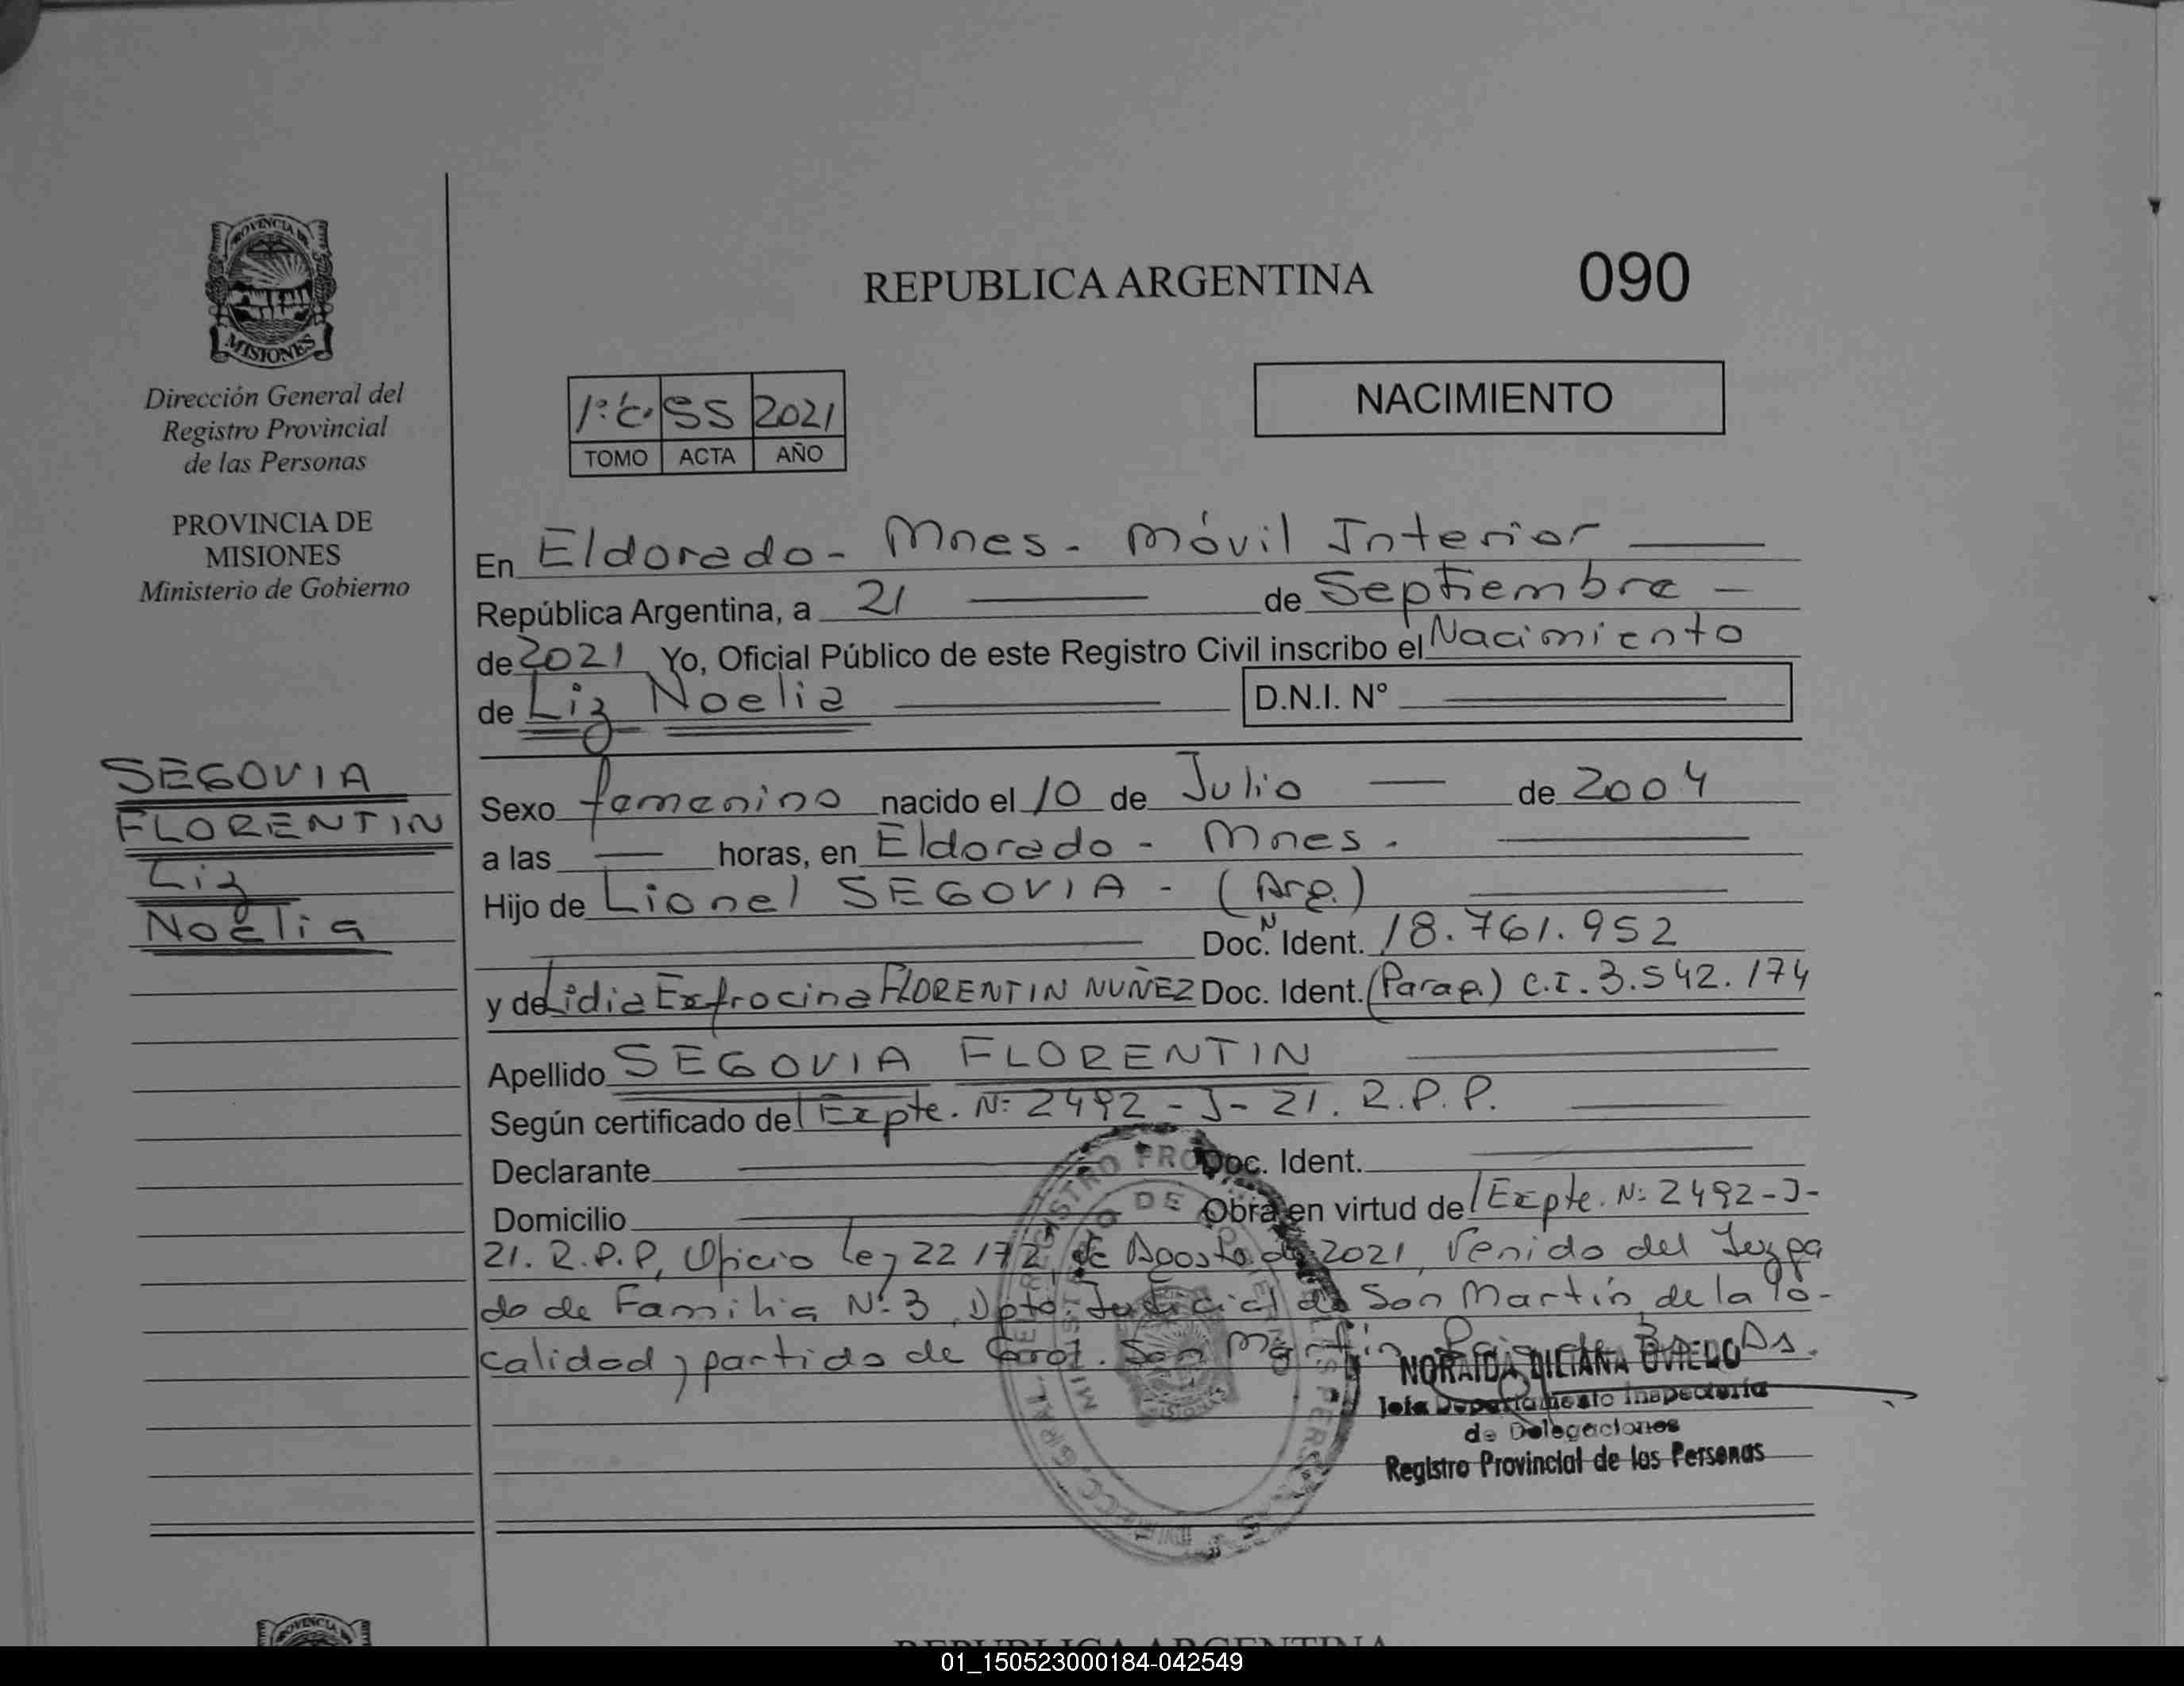 PROVINCIA DE
MISIONES
Dirección General del
Registro Provincial
de las Personas
PROVINCIA DE
MISIONES
Ministerio de Gobierno
SEGOVIA
FLORENTIN
Liz
Noelia
REPUBLICA ARGENTINA
090
1º C. 55 2021
TOMO ACTA AÑO
NACIMIENTO
En Eldorado - Mnes - Móvil Interior
República Argentina, a 21 de Septiembre
de 2021 Yo, Oficial Público de este Registro Civil inscribo el Nacimiento
de Liz Noelia D.N.I. Nº
Sexo femenino nacido el 10 de Julio de 2004
a las horas, en Eldorado - Mnes.
Hijo de Lionel SEGOVIA - (Arg.)
Doc. Ident. 18.761.952
y de Lidia Exfrocina FLORENTIN NUÑEZ Doc. Ident. (Parag.) C.I. 3.542.174
Apellido SEGOVIA FLORENTIN
Según certificado del Expte. Nº 2492-J-21. R.P.P.
Declarante Doc. Ident.
Domicilio Obra en virtud del Expte. Nº 2492-J-
21. R.P.P, Oficio Ley 22172, de Agosto de 2021, Venido del Juzga
do de Familia Nº 3, Dpto. Judicial de San Martín, de la lo-
calidad y partido de Gral. San Martín Bs As.
NORAIDA LILIANA OVIEDO
Jefa Departamento Inspectoría
de Delegaciones
Registro Provincial de las Personas
REPUBLICA ARGENTINA
01_150523000184-042549